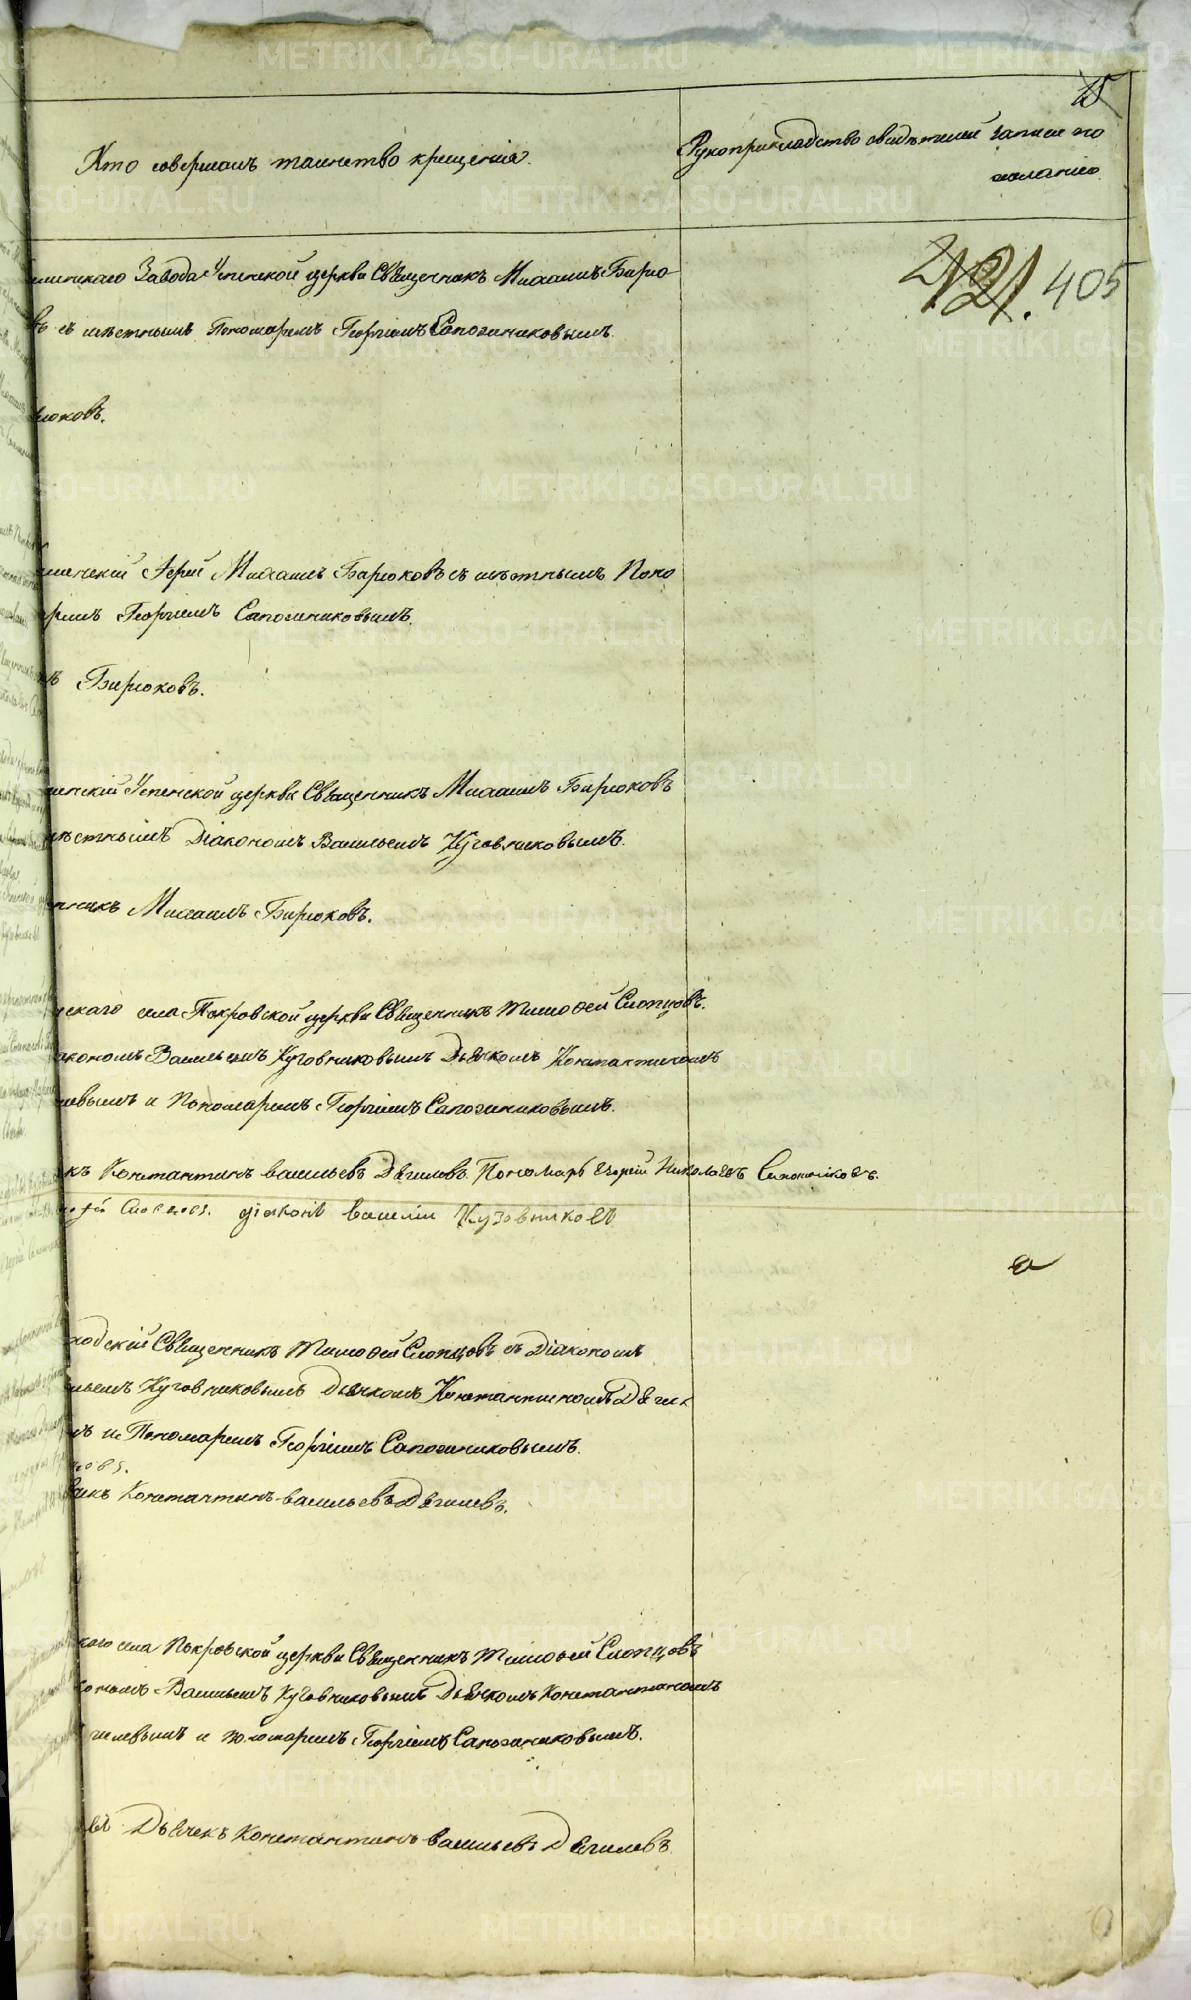 15
Кто совершалъ таинство крещенія.
Рукоприкладство свидѣтелей записи по
желанію.
121. 405
Завода Успенской церкви Священникъ Михаилъ Бирю-
въ съ мѣстнымъ Пономаремъ Георгіемъ Сапожниковымъ.
рюковъ.
Іерей Михаилъ Бирюковъ съ мѣстнымъ Поно
аремъ Георгіемъ Сапожниковымъ.
лъ Бирюковъ.
Успенской церкви Священникъ Михаилъ Бирюковъ
мѣстнымъ Діакономъ Васильемъ Кузовниковымъ.
енникъ Михаилъ Бирюковъ.
скаго села Покровской церкви Священникъ Тимофей Слопцовъ.
акономъ Васильемъ Кузовниковымъ Дьячкомъ Константиномъ
левымъ и Пономаремъ Георгіемъ Сапожниковымъ.
къ Константинъ васильевъ Дягилевъ. Пономарь Георгій Николаевъ Сапожниковъ.
фей Слопцовъ. діаконъ василій Кузовниковъ
а
ходскій Священникъ Тимофей Слопцовъ съ Діакономъ
льемъ Кузовниковымъ Дьячкомъ Константиномъ Дягиле
мъ и Пономаремъ Георгіемъ Сапожниковымъ.
цовъ.
чекъ Константинъ васильевъ Дягилевъ.
каго села Покровской церкви Священникъ Тимофей Слопцовъ
кономъ Васильемъ Кузовниковымъ Дьячкомъ Константиномъ
гилевымъ и пономаремъ Георгіемъ Сапожниковымъ.
въ Дьячекъ Константинъ васильевъ Дягилевъ.
METRIKI.GASO-URAL.RU